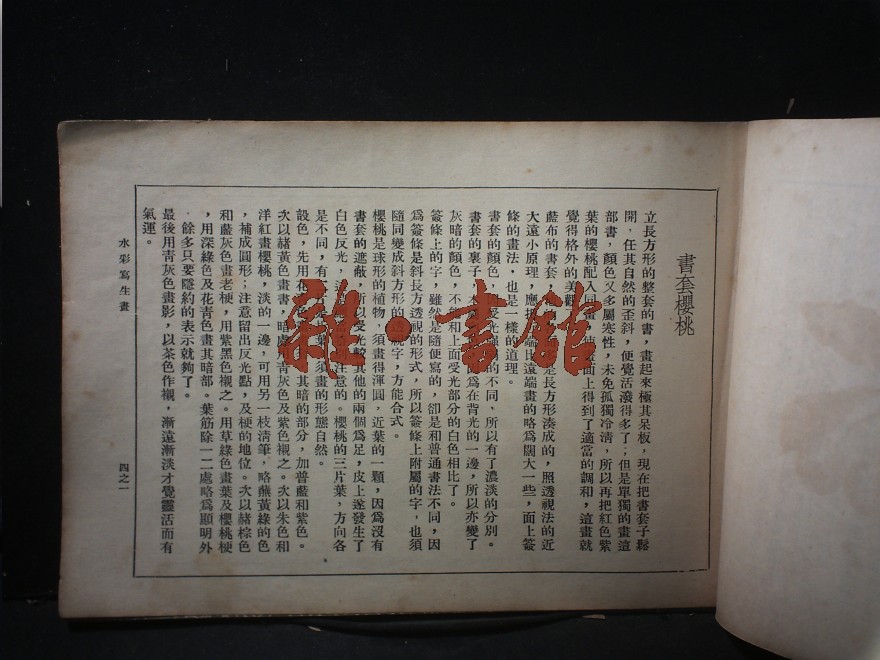 書套櫻桃
立長方形的整套的書，畫起來極其呆板，現在把書套子鬆
開，任其自然的歪斜，便覺活潑得多了；但是單獨的畫這
部書，顏色又多屬寒性，未免孤獨冷清，所以再把紅色紫
葉的櫻桃配入同畫，使畫面上得到了適當的調和，這畫就
覺得格外的美觀
藍布的書套，是長方形湊成的，照透視法的近
大遠小原理，應把近端比遠端畫的略為闊大一些，面上簽
條的畫法，也是一樣的道理。
書套的顏色，受光的不同，所以有了濃淡的分別。
書套的裏子，因為在背光的一邊，所以亦變了
灰暗的顏色，不和上面受光部分的白色相比了。
簽條上的字，雖然是隨便寫的，卻是和普通書法不同，因
為簽條是斜長方透視的形式，所以簽條上附屬的字，也須
隨同變成斜方形的透視字，方能合式。
櫻桃是球形的植物，須畫得渾圓，近葉的一顆，因為沒有
書套的遮蔽，所以受光較其他的兩個為足，皮上遂發生了
白色反光，注意的。櫻桃的三片葉，方向各
是不同，有須畫的形態自然。
設色，先用花其暗的部分，加普藍和紫色。
次以赭黃色畫書，暗處用青灰色及紫色襯之。次以朱色和
洋紅畫櫻桃，淡的一邊，可用另一枝清筆，略蘸黃綠的色
，補成圓形；注意留出反光點，及梗的地位。次以赭棕色
和藍灰色畫老梗，用紫黑色襯之。用草綠色畫葉及櫻桃梗
，用深綠色及花青色畫其暗部。葉筋除一二處略為顯明外
，餘多只要隱約的表示就夠了。
最後用青灰色畫影，以茶色作襯，漸遠漸淡才覺靈活而有
氣運。
水彩寫生畫
四之一
雜·書館